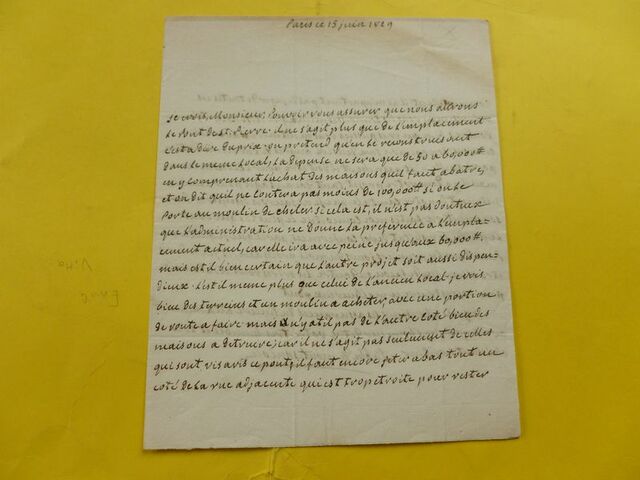 Paris ce 15 juin 1829
je crois, Monsieur, Pouvoir vous assurer que nous aurons
le Pont de st. Pierre il ne s'agit plus que de l'emplacement
c'est a dire du prix on pretend qu'en le reconstruisant
dans le meme local, la depense ne sera que de 50 a 60,000tt
en y comprenant l'achat des maisons qu'il faut abatre,
et on dit qu'il ne coutera pas moins de 100,000tt si on le
Porte au moulin de si cela est, il n'est pas douteux
que l'administration ne Donne la preference a l'empla-
cement actuel, car elle ira avec peine jusqu'aux 60,000tt.
mais est il bien certain que l'autre projet soit aussi dispen-
dieux. l'est il meme plus que celui de l'ancien local je vois
bien des terreins et un moulin a acheter, avec une portion
de route a faire mais n'y a t il pas de l'autre coté bien des
maisons a detruire; car il ne s'agit pas seulement de celles
qui sont vis avis ce pont, il faut encore jeter a bas tout un
coté de la rue adjacente qui est trop etroite pour rester